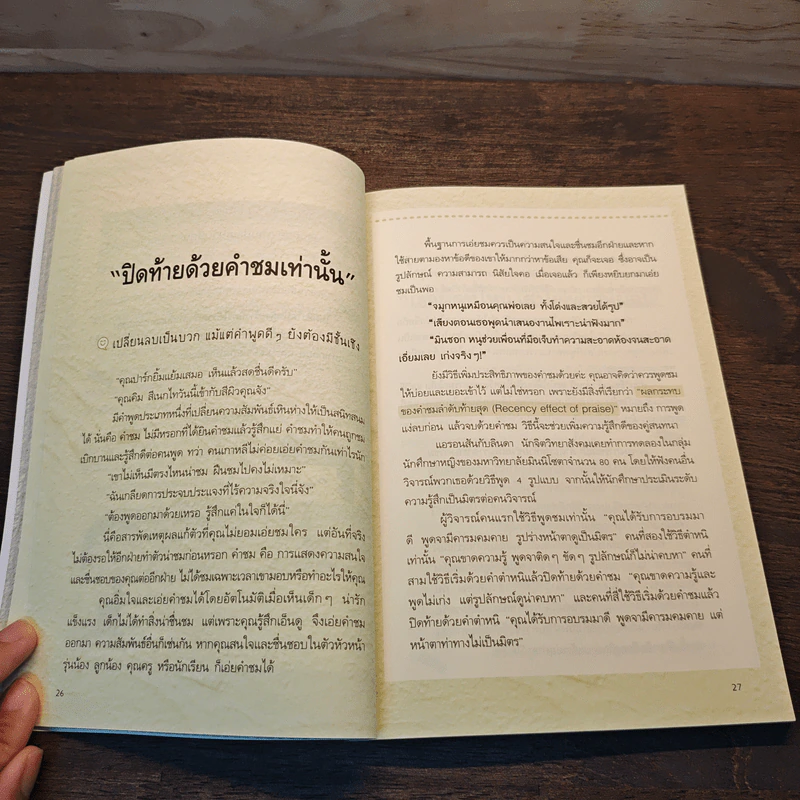 “ปิดท้ายด้วยคำชมเท่านั้น”
เปลี่ยนลบเป็นบวก แม้แต่คำพูดดีๆ ยังต้องมีชั้นเชิง
“คุณปาร์กยิ้มแย้มเสมอ เห็นแล้วสดชื่นดีครับ”
“คุณคิม สีเนกไทวันนี้เข้ากับสีผิวคุณจัง”
มีคำพูดประเภทหนึ่งที่เปลี่ยนความสัมพันธ์เหินห่างให้เป็นสนิทสนม
ได้ นั่นคือ คำชม ไม่มีหรอกที่ได้ยินคำชมแล้วรู้สึกแย่ คำชมทำให้คนถูกชม
เบิกบานและรู้สึกดีต่อคนพูด ทว่า คนเกาหลีไม่ค่อยเอ่ยคำชมกันเท่าไรนัก
“เขาไม่เห็นมีตรงไหนน่าชม ฝืนชมไปคงไม่เหมาะ”
“ฉันเกลียดการประจบประแจงที่ไร้ความจริงใจนี่จัง”
“ต้องพูดออกมาด้วยเหรอ รู้สึกแค่ในใจก็ได้นี่”
นี่คือสารพัดเหตุผลแก้ตัวที่คุณไม่ยอมเอ่ยชมใคร แต่อันที่จริง
ไม่ต้องรอให้อีกฝ่ายทำตัวน่าชมก่อนหรอก คำชม คือ การแสดงความสนใจ
และชื่นชอบของคุณต่ออีกฝ่าย ไม่ได้ชมเฉพาะเวลาเขามอบหรือทำอะไรให้คุณ
คุณอิ่มใจและเอ่ยคำชมได้โดยอัตโนมัติเมื่อเห็นเด็กๆ น่ารัก
แข็งแรง เด็กไม่ได้ทำสิ่งน่าชื่นชม แต่เพราะคุณรู้สึกเอ็นดู จึงเอ่ยคำชม
ออกมา ความสัมพันธ์อื่นก็เช่นกัน หากคุณสนใจและชื่นชอบในตัวหัวหน้า
รุ่นน้อง ลูกน้อง คุณครู หรือนักเรียน ก็เอ่ยคำชมได้
26
พื้นฐานการเอ่ยชมควรเป็นความสนใจและชื่นชมอีกฝ่ายและหาก
ใช้สายตามองหาข้อดีของเขาให้มากกว่าหาข้อเสีย คุณก็จะเจอ ซึ่งอาจเป็น
รูปลักษณ์ ความสามารถ นิสัยใจคอ เมื่อเจอแล้ว ก็เพียงหยิบยกมาเอ่ย
ชมเป็นพอ
“จมูกหนูเหมือนคุณพ่อเลย ทั้งโด่งและสวยได้รูป”
“เสียงตอนเธอพูดนำเสนองานไพเราะน่าฟังมาก”
“มินซอก หนูช่วยเพื่อนที่มือเจ็บทำความสะอาดห้องจนสะอาด
เอี่ยมเลย เก่งจริงๆ!”
ยังมีวิธีเพิ่มประสิทธิภาพของคำชมด้วยค่ะ คุณอาจคิดว่าควรพูดชม
ให้บ่อยและเยอะเข้าไว้ แต่ไม่ใช่หรอก เพราะยังมีสิ่งที่เรียกว่า “ผลกระทบ
ของคำชมลำดับท้ายสุด (Recency effect of praise)” หมายถึง การพูด
แง่ลบก่อน แล้วจบด้วยคำชม วิธีนี้จะช่วยเพิ่มความรู้สึกดีของคู่สนทนา
แอรอนสันกับลินดา นักจิตวิทยาสังคมเคยทำการทดลองในกลุ่ม
นักศึกษาหญิงของมหาวิทยาลัยมินนิโซตาจำนวน 80 คน โดยให้ฟังคนอื่น
วิจารณ์พวกเธอด้วยวิธีพูด 4 รูปแบบ จากนั้นให้นักศึกษาประเมินระดับ
ความรู้สึกเป็นมิตรต่อคนวิจารณ์
ผู้วิจารณ์คนแรกใช้วิธีพูดชมเท่านั้น “คุณได้รับการอบรมมา
ดี พูดจามีคมคมคาย รูปร่างหน้าตาดูเป็นมิตร” คนที่สองใช้วิธีตำหนิ
เท่านั้น “คุณขาดความรู้ พูดจาติดๆ ขัดๆ รูปลักษณ์ก็ไม่น่าคบหา” คนที่
สามใช้วิธีเริ่มด้วยคำตำหนิแล้วปิดท้ายด้วยคำชม “คุณขาดความรู้และ
พูดไม่เก่ง แต่รูปลักษณ์ดูน่าคบหา” และคนที่สี่ใช้วิธีเริ่มด้วยคำชมแล้ว
ปิดท้ายด้วยคำตำหนิ “คุณได้รับการอบรมมาดี พูดจามีคารมคมคาย แต่
หน้าตาท่าทางไม่เป็นมิตร”
27